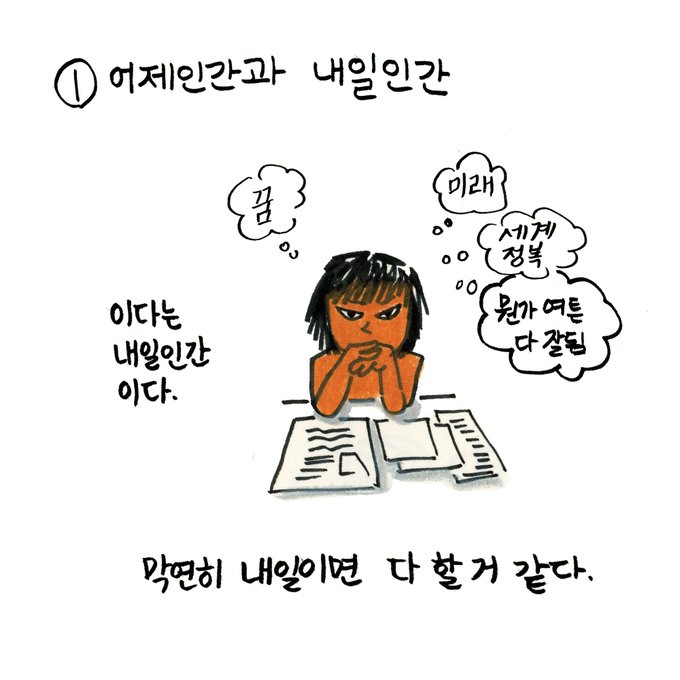 ① 어제인간과 내일인간
꿈
미래
세계
정복
뭔가 여튼
다 잘됨
이다는
내일인간
이다.
막연히 내일이면 다 할 거 같다.